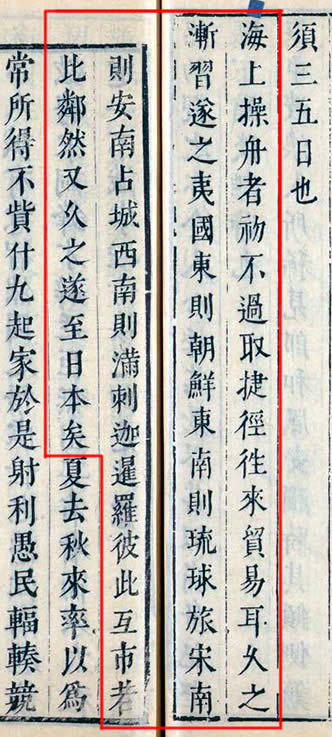 須三五日也
海上操舟者初不過取捷徑徃來貿易耳久之
漸習遂之夷國東則朝鮮東南則琉球旅宋南
則安南占城西南則滿剌迦暹羅彼此互市若
比鄰然又久之遂至日本矣夏去秋來率以爲
常所得不貲什九起家於是射利愚民輻輳競